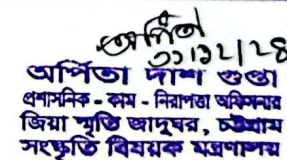 অর্পিতা
৩১।১২।২৪
অর্পিতা দাশ গুপ্তা
প্রশাসনিক - কাম - নিরাপত্তা অফিসার
জিয়া স্মৃতি জাদুঘর, চট্টগ্রাম
সংস্কৃতি বিষয়ক মন্ত্রণালয়